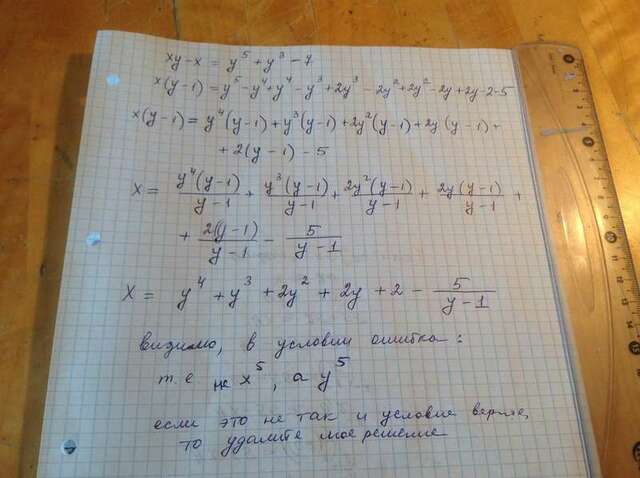 xy - x = y⁵ + y³ - 7
x(y-1) = y⁵ - y⁴ + y⁴ - y³ + 2y³ - 2y² + 2y² - 2y + 2y - 2 - 5
x(y-1) = y⁴(y-1) + y³(y-1) + 2y²(y-1) + 2y(y-1) +
+ 2(y-1) - 5
x = y⁴(y-1)/y-1 + y³(y-1)/y-1 + 2y²(y-1)/y-1 + 2y(y-1)/y-1 +
+ 2(y-1)/y-1 - 5/y-1
x = y⁴ + y³ + 2y² + 2y + 2 - 5/y-1
видимо, в условии ошибка:
т.е не x⁵, а y⁵
если это не так и условие верно,
то удалите мое решение